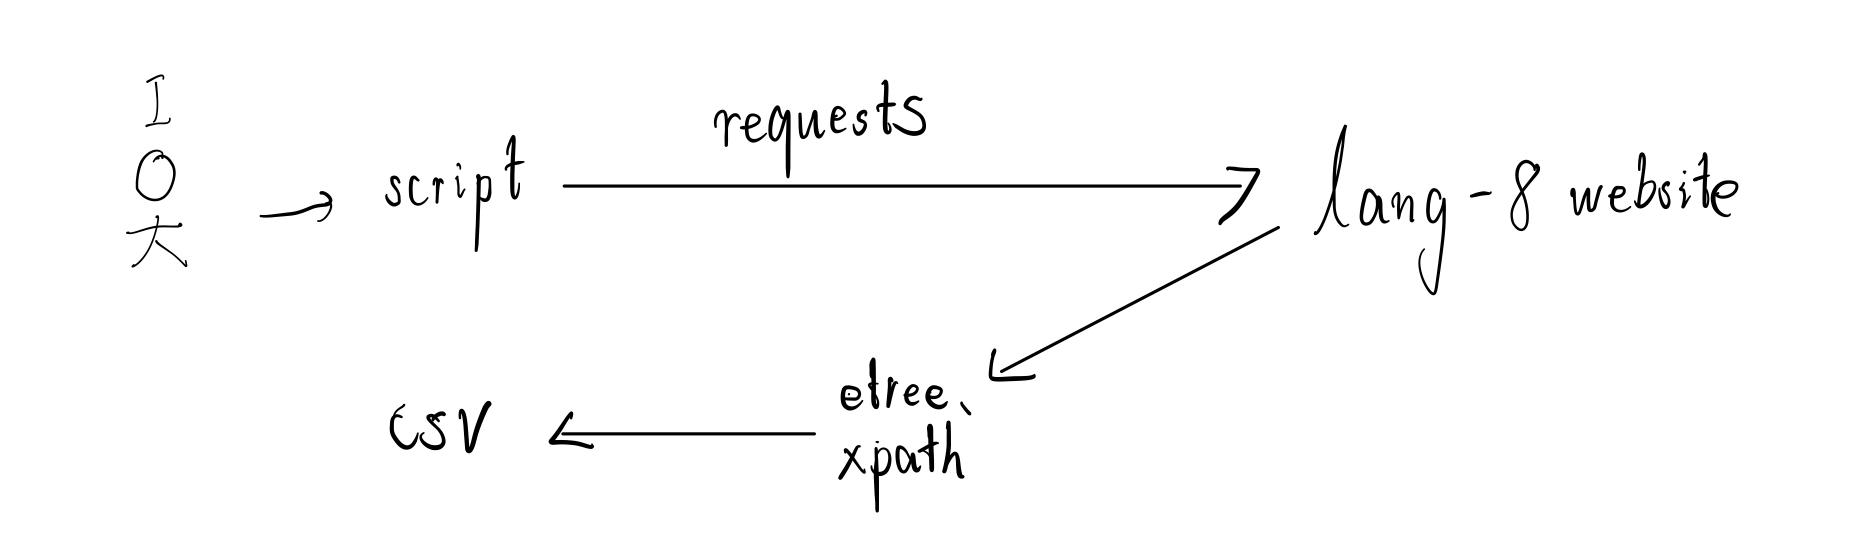 I
O
大
script
requests
lang-8 website
etree、
xpath
csv